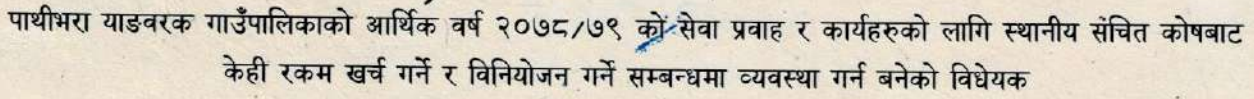 पाथीभरा याङवरक गाउँपालिकाको आर्थिक वर्ष २०७८/७९ को सेवा प्रवाह र कार्यहरुको लागि स्थानीय संचित कोषबाट
केही रकम खर्च गर्ने र विनियोजन गर्ने सम्बन्धमा व्यवस्था गर्न बनेको विधेयक